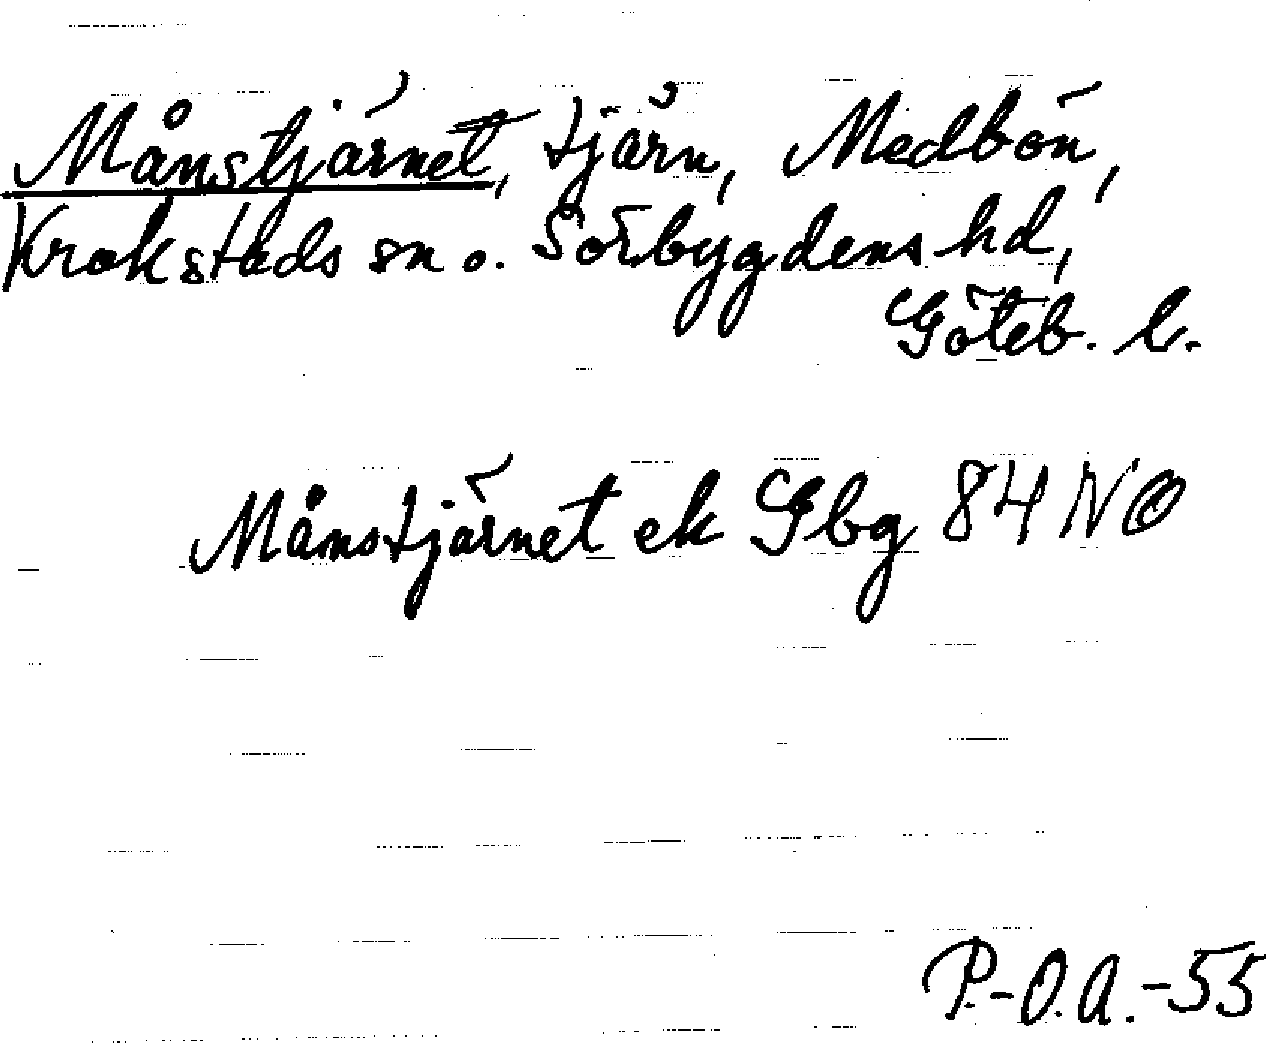 Månstjärnet, tjärn, Medbön,
Krokstads sn o. Sörbygdens hd,
Göteb. l.
Månstjärnet ek Gbg 84 NO
P.-O.A.-55